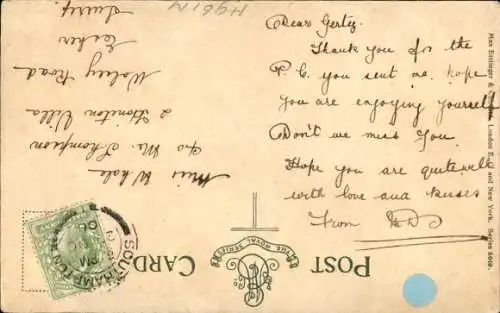 Dear Gerty.
Thank you for the
P. C. you sent me. hope
you are enjoying yourself
Don't we miss you.
Hope you are quite well
with love and kisses
From
Miss Whale
c/o Mr. Thompson
2 Honiton Villa
Wolsey Road
Esher
Surrey.
POST CARD
THE ROYAL SERIES
SOUTHAMPTON
PM
Max Ettlinger & London E.C. and New York. Series